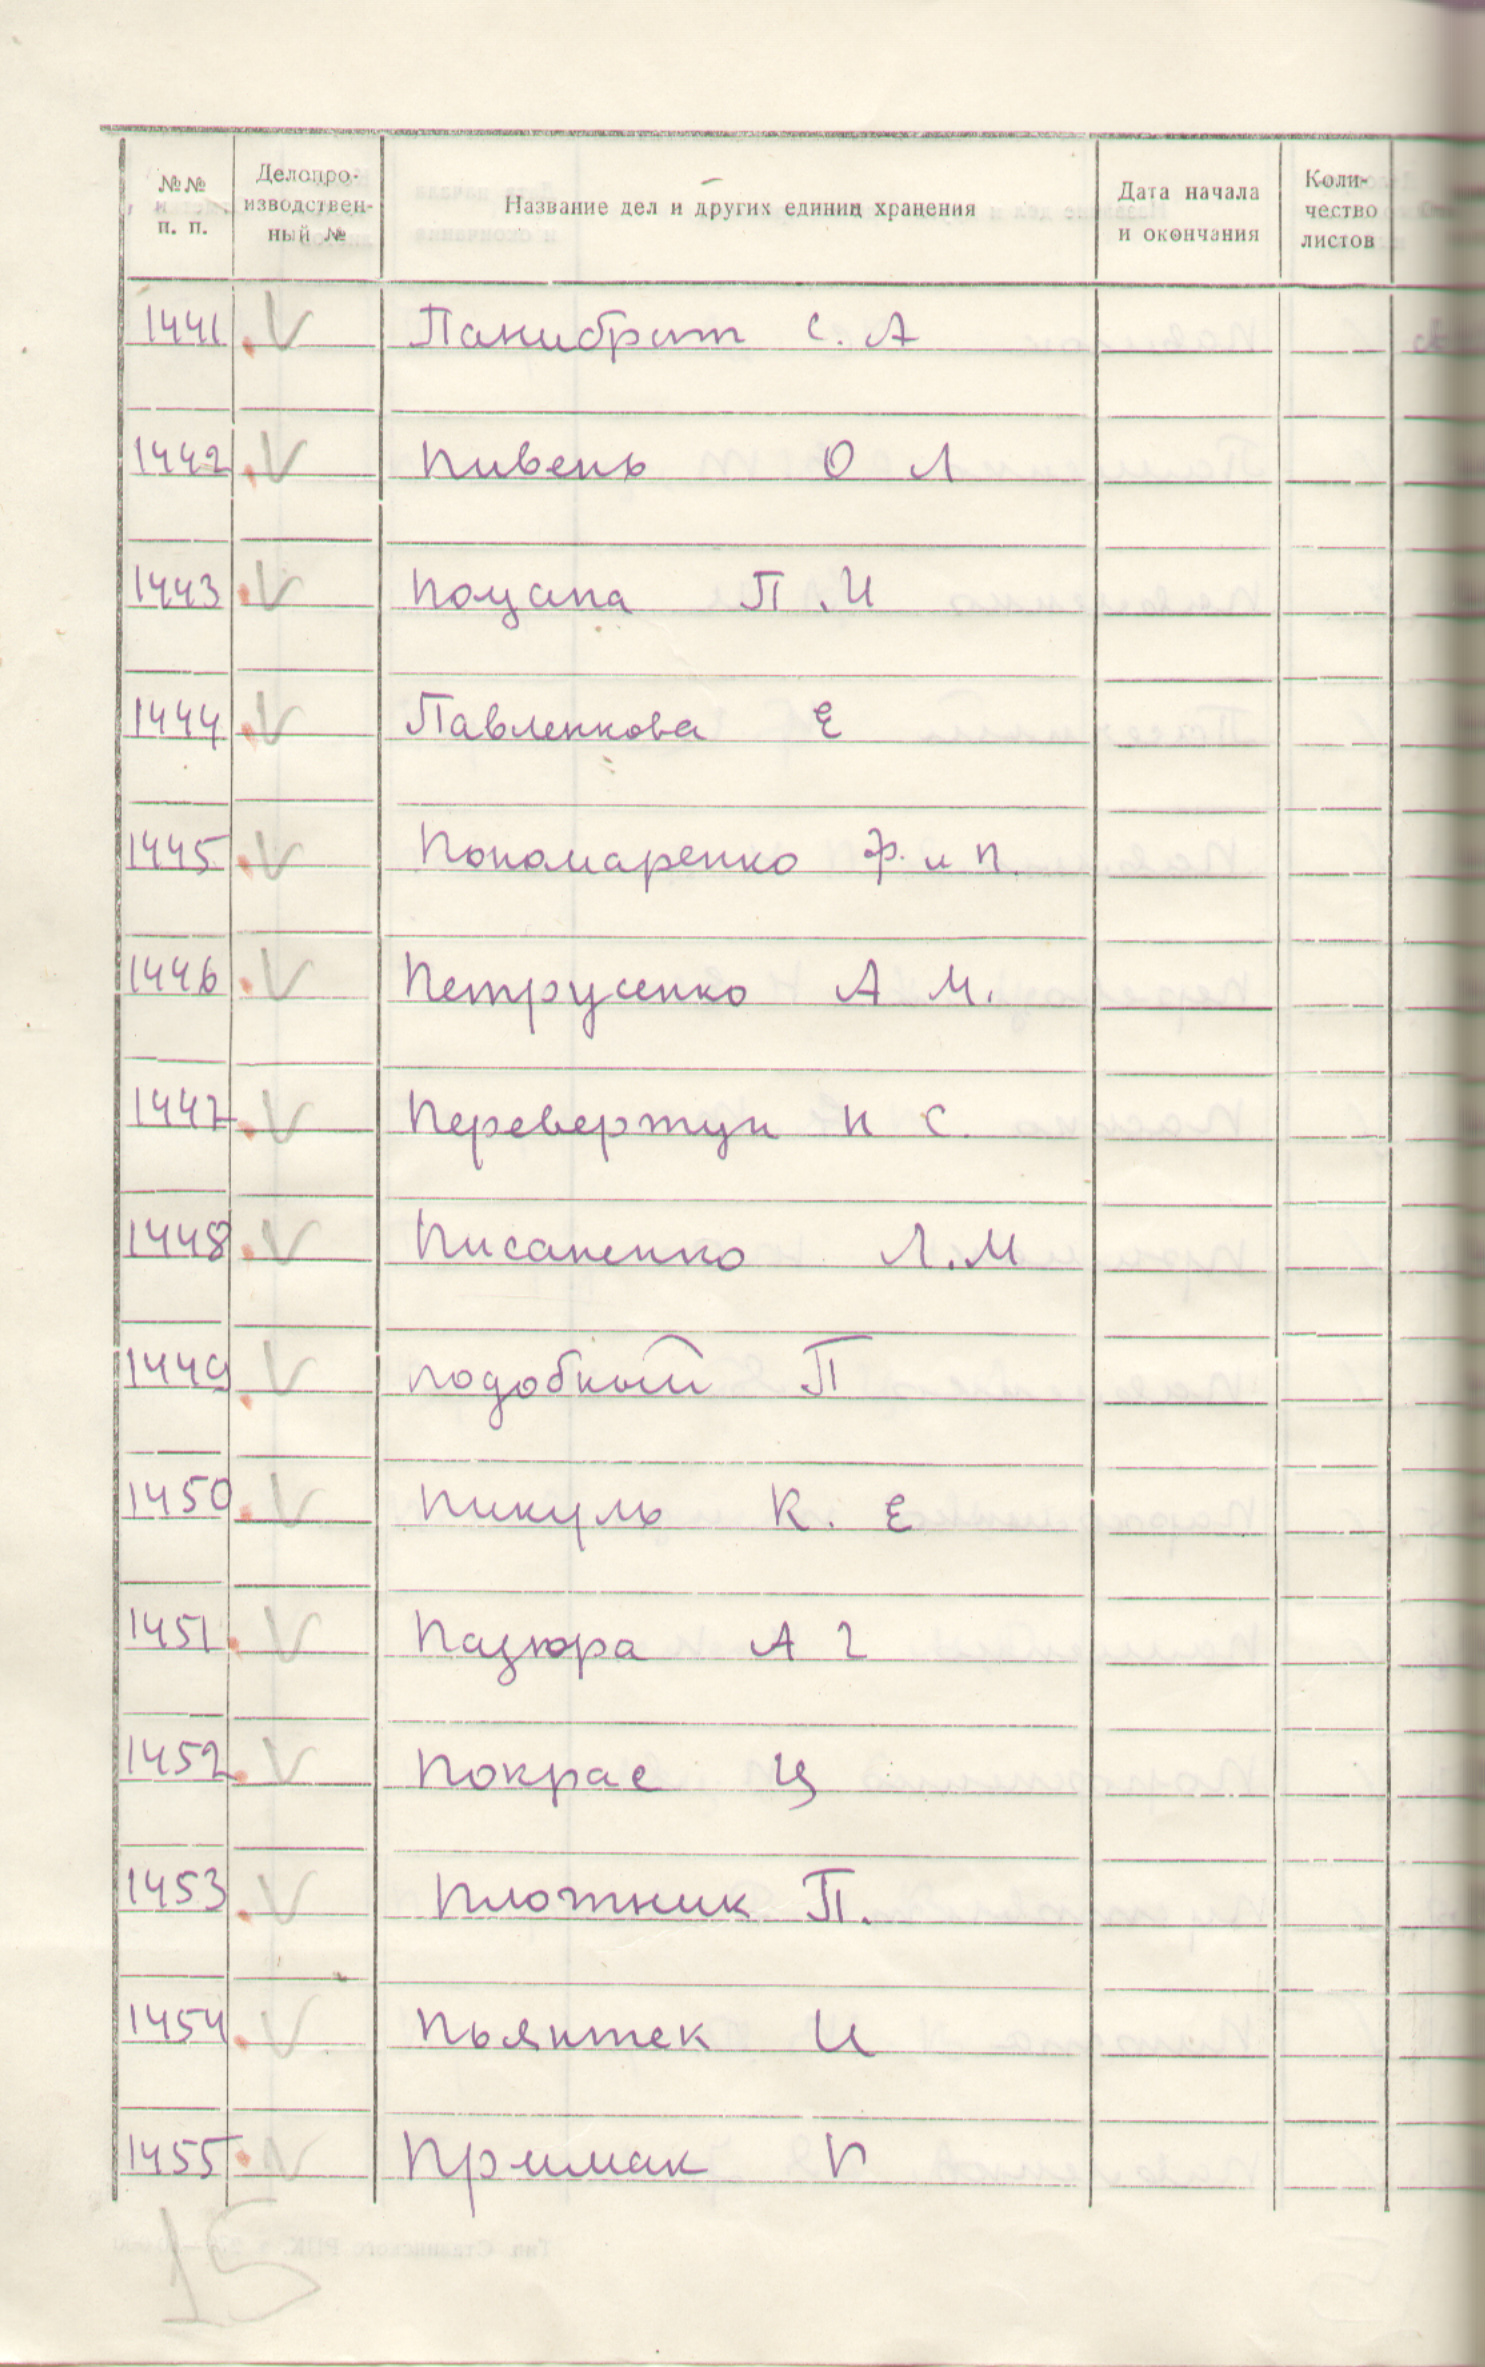 №№ п. п. Делопроизводственный № Название дел и других единиц хранения Дата начала и окончания Количество листов
1441 V Панибрат С. А
1442 V Пивень О Л
1443 V Поцапа П. И
1444 V Павленкова Е
1445 V Пономаренко Ф. и П.
1446 V Петрусенко А М.
1447 V Перевертун Н С.
1448 V Писаненко Л. М
1449 V Подобный П
1450 V Пикуль К. Е
1451 V Пазюра А Г
1452 V Покрас Ц
1453 V Плотник П.
1454 V Пьянтек И
1455 V Примак П
15